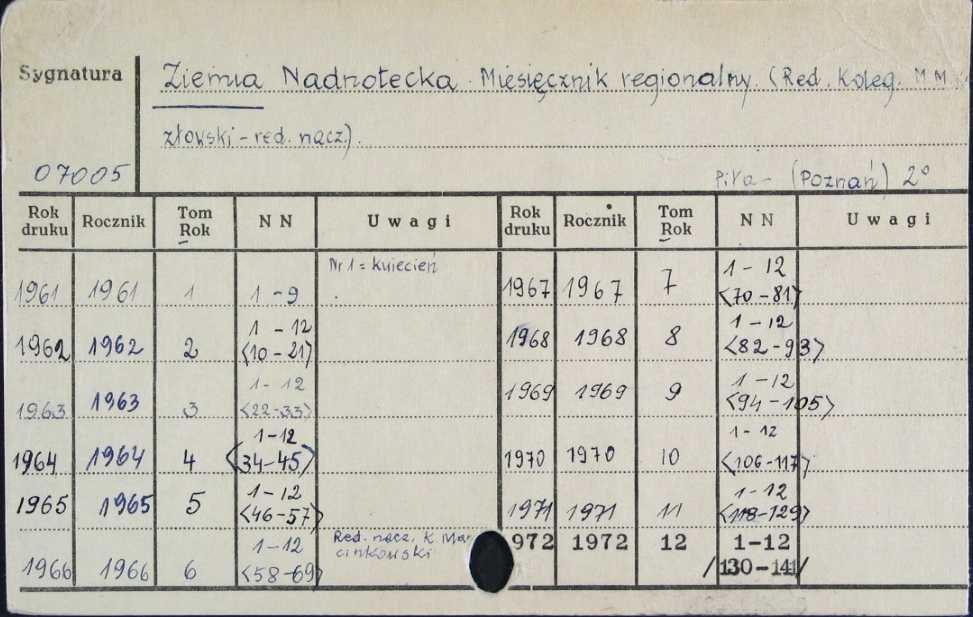 Sygnatura
Ziemia Nadnotecka. Miesięcznik regionalny. (Red. Koleg. M M
złowski - red. nacz.).
07005
Piła - (Poznań) 2°
Rok druku Rocznik Tom Rok NN Uwagi Rok druku Rocznik Tom Rok NN Uwagi
1961 1961 1 1-9 Nr 1 = kwiecień
1962 1962 2 1-12 <10-21>
1963 1963 3 1-12 <22-33>
1964 1964 4 1-12 <34-45>
1965 1965 5 1-12 <46-57>
1966 1966 6 1-12 <58-69> Red. nacz. K. Mar
cinkowski
1967 1967 7 1-12 <70-81>
1968 1968 8 1-12 <82-93>
1969 1969 9 1-12 <94-105>
1970 1970 10 1-12 <106-117>
1971 1971 11 1-12 <118-129>
972 1972 12 1-12 /130-141/